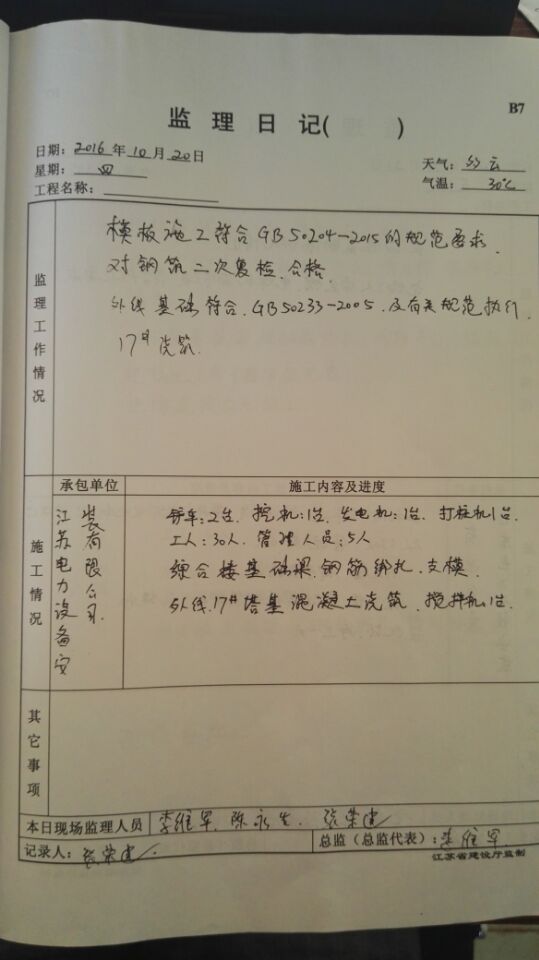 B7
监理日记( )
日期：2016年10月20日
天气：多云
星期：四
气温：30℃
工程名称：
监理工作情况
模板施工符合GB50204-2015的规范要求.
对钢筋二次复检.合格.
外线基础符合.GB50233-2005.及有关规范执行.
17#浇筑.
施工情况
承包单位
施工内容及进度
江苏电力设备安
装有限公司.
铲车:2台.挖机:1台.发电机:1台.打桩机1台.
工人:30人.管理人员:5人
综合楼基础梁.钢筋绑扎.支模.
外线.17#塔基混凝土浇筑.搅拌机:1台.
其它事项
本日现场监理人员 李维军.陈永生.张荣建
记录人：张荣建
总监（总监代表）：李维军
江苏省建设厅监制